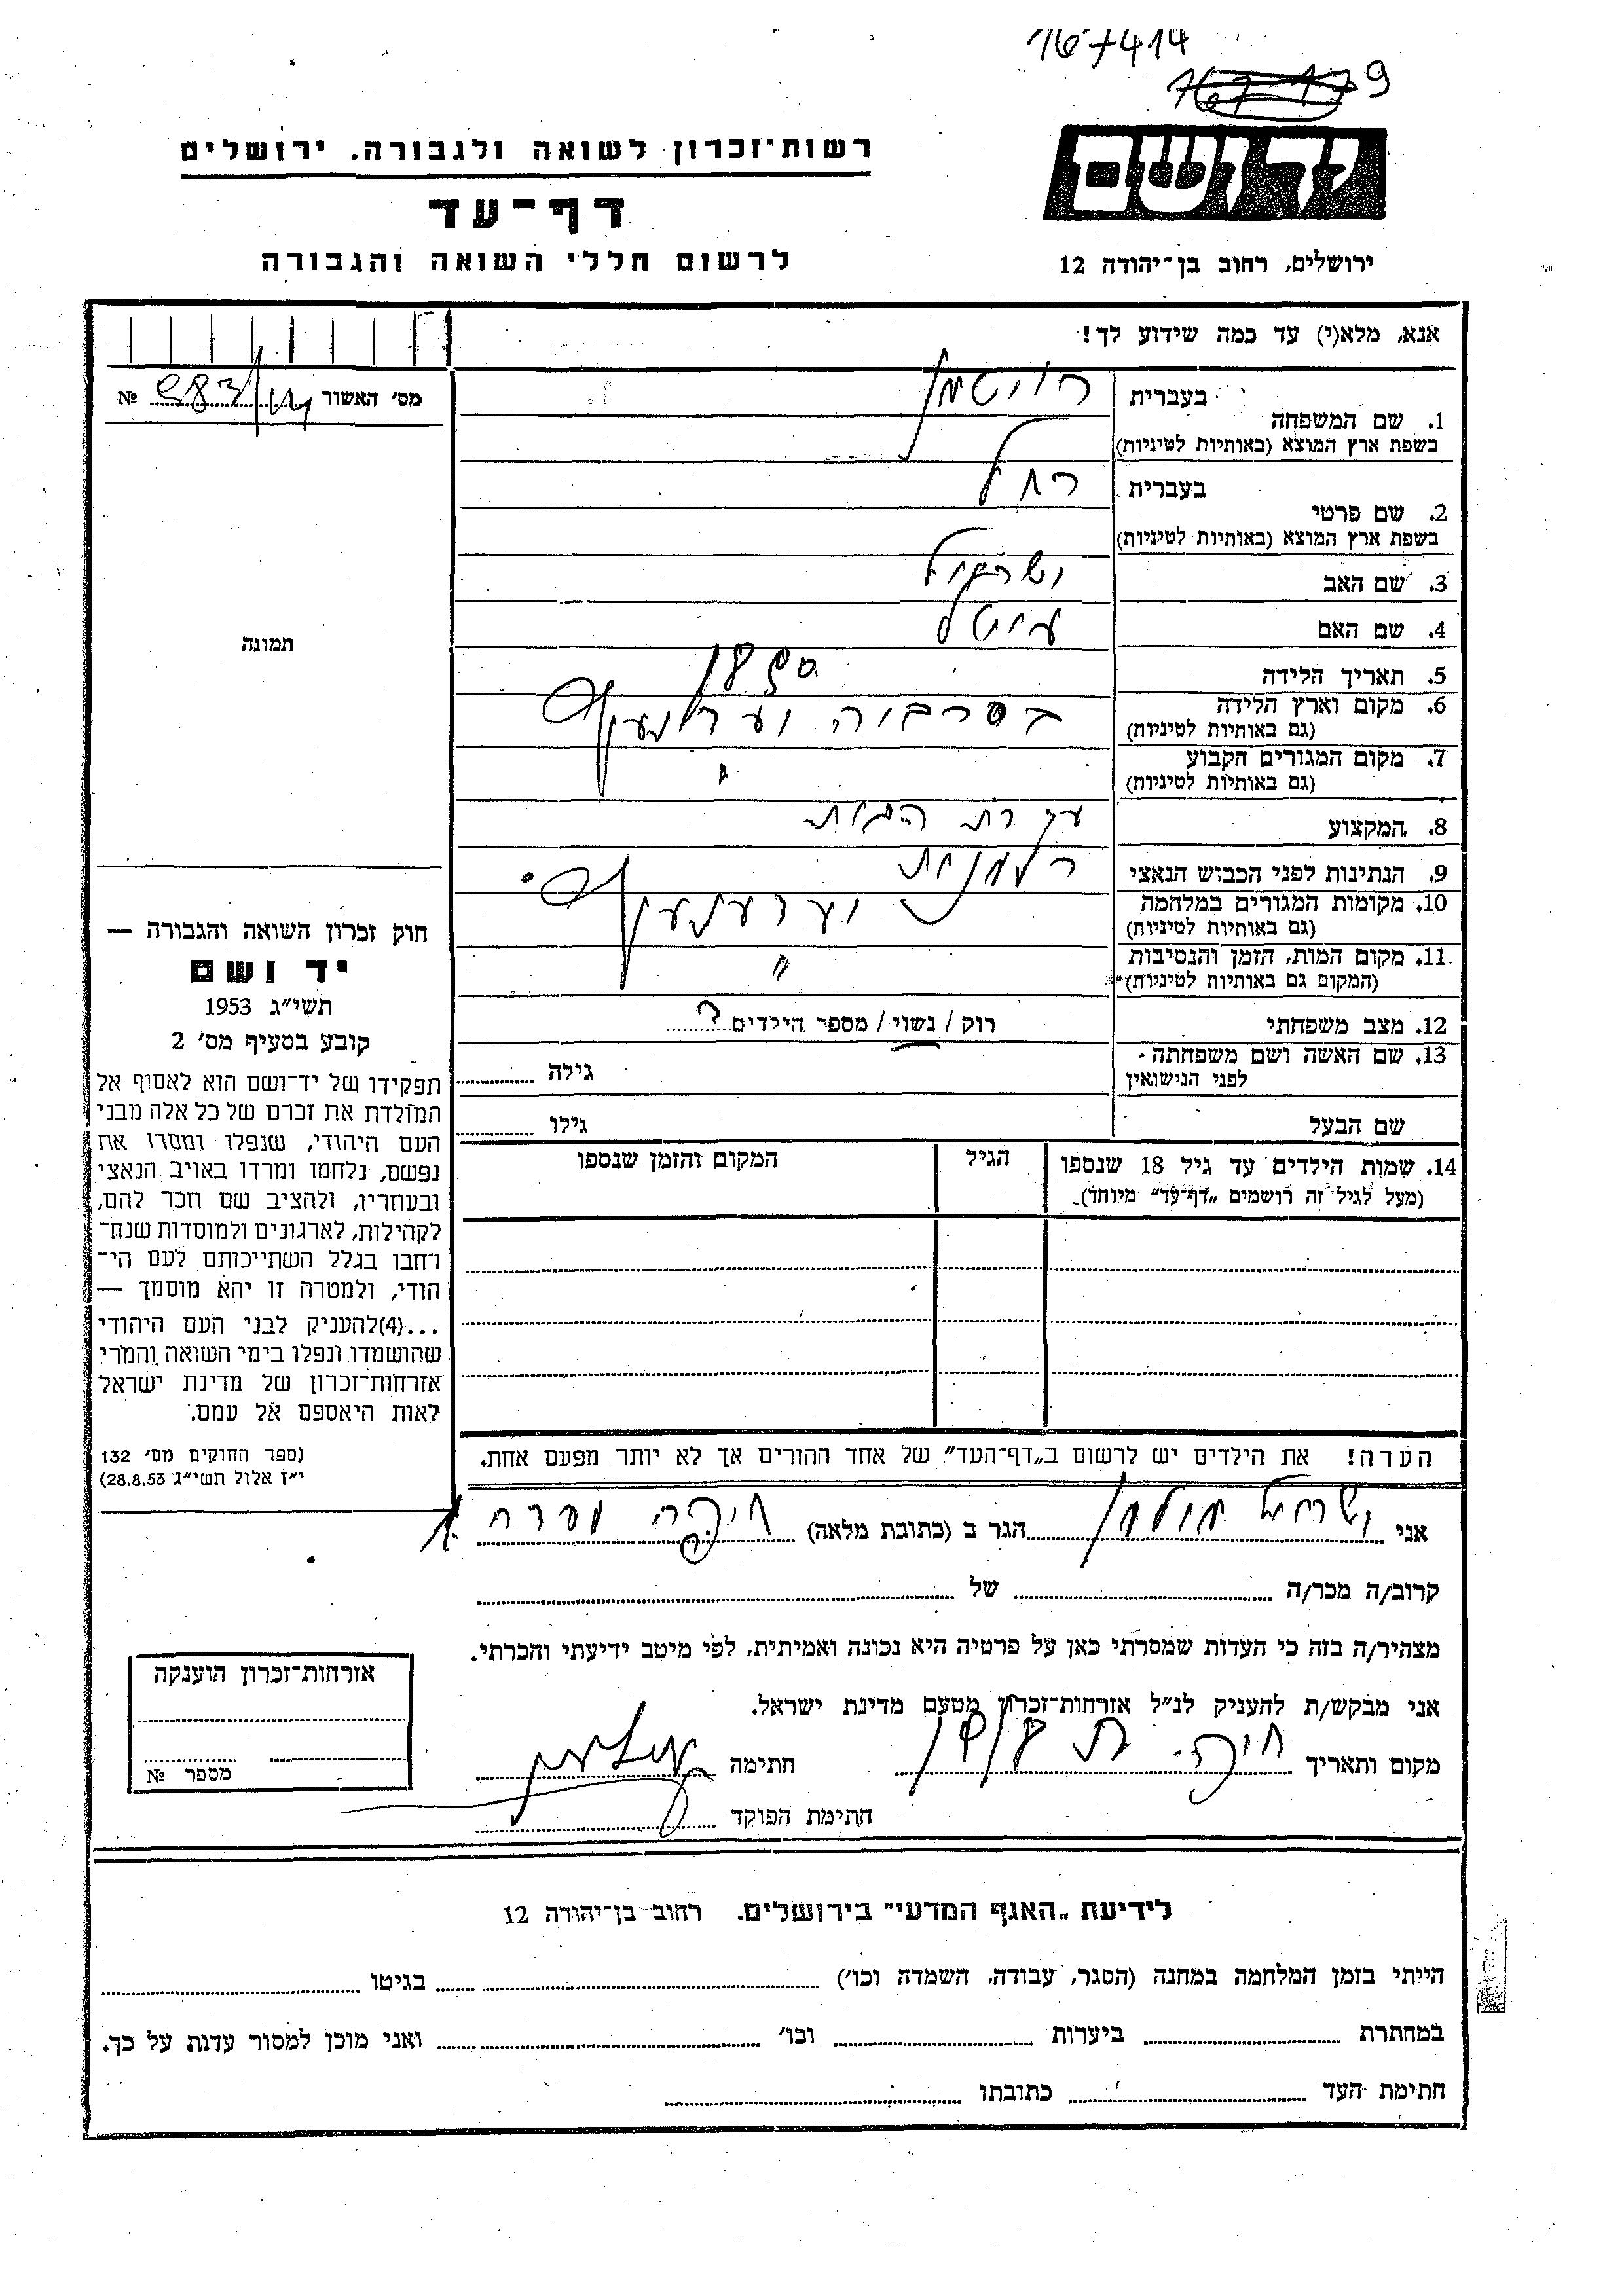 167414
רשות־זכרון לשואה ולגבורה. ירושלים
ידושם
דף־עד
לרשום חללי השואה והגבורה
ירושלים, רחוב בן־יהודה 12
אנא, מלא(י) עד כמה שידוע לך!
מס׳ האשור № 
בעברית רויטמן
1. שם המשפחה
בשפת ארץ המוצא (באותיות לטיניות)
בעברית רחל
2. שם פרטי
בשפת ארץ המוצא (באותיות לטיניות)
3. שם האב ישראל
4. שם האם
תמונה
5. תאריך הלידה 1890
6. מקום וארץ הלידה בסרביה
(גם באותיות לטיניות)
7. מקום המגורים הקבוע "
(גם באותיות לטיניות)
8. המקצוע עקרת הבית
9. הנתינות לפני הכבוש הנאצי רומנית
10. מקומות המגורים במלחמה
(גם באותיות לטיניות)
11. מקום המות, הזמן והנסיבות "
(המקום גם באותיות לטיניות)
12. מצב משפחתי רוק / נשוי / מספר הילדים ?
13. שם האשה ושם משפחתה
לפני הנישואין
גילה
שם הבעל גילו
חוק זכרון השואה והגבורה —
יד ושם
תשי״ג 1953
קובע בסעיף מס׳ 2
תפקידו של יד־ושם הוא לאסוף אל
המולדת את זכרם של כל אלה מבני
העם היהודי, שנפלו ומסרו את
נפשם, נלחמו ומרדו באויב הנאצי
ובעוזריו, ולהציב שם וזכר להם,
לקהילות, לארגונים ולמוסדות שנח־
רבו בגלל השתייכותם לעם הי־
הודי, ולמטרה זו יהא מוסמך —
...(4)להעניק לבני העם היהודי
שהושמדו ונפלו בימי השואה והמרי
אזרחות־זכרון של מדינת ישראל
לאות היאספם אל עמם.
(ספר החוקים מס׳ 132
י״ז אלול תשי״ג 28.8.53)
14. שמות הילדים עד גיל 18 שנספו
(מעל לגיל זה רושמים „דף־עד״ מיוחד).
הגיל
המקום והזמן שנספו
הערה! את הילדים יש לרשום ב„דף־העד״ של אחד ההורים אך לא יותר מפעם אחת.
אני ישראל הגר ב (כתובת מלאה) חיפה
קרוב/ה מכר/ה של
מצהיר/ה בזה כי העדות שמסרתי כאן על פרטיה היא נכונה ואמיתית, לפי מיטב ידיעתי והכרתי.
אני מבקש/ת להעניק לנ״ל אזרחות־זכרון מטעם מדינת ישראל.
מקום ותאריך חיפה חתימה
חתימת הפוקד
אזרחות־זכרון הוענקה
מספר №
לידיעת „האגף המדעי״ בירושלים. רחוב בן־יהודה 12
הייתי בזמן המלחמה במחנה (הסגר, עבודה, השמדה וכו׳) בגיטו
במחתרת ביערות וכו׳ ואני מוכן למסור עדות על כך.
חתימת העד כתובתו